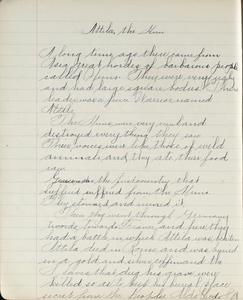 Attila, the Hun
A long time ago there came from
Asia great hordes of barbarous people
called Huns. They were very ugly
and had large square bodies. Their
leader was a fierce warrior named
Attila.
The Huns were very cruel and
destroyed every thing they saw.
Their voices were like those of wild
animals and they ate their food
raw.
the first country that
suffered from the Huns.
They and ruined it.
Then they went through Germany
towards France and here they
had a battle in which Attila was beaten
Attila died in and was buried
in a gold and silver coffin and the
slaves that dug his grave were
killed so as to keep his burial space
secret from the people